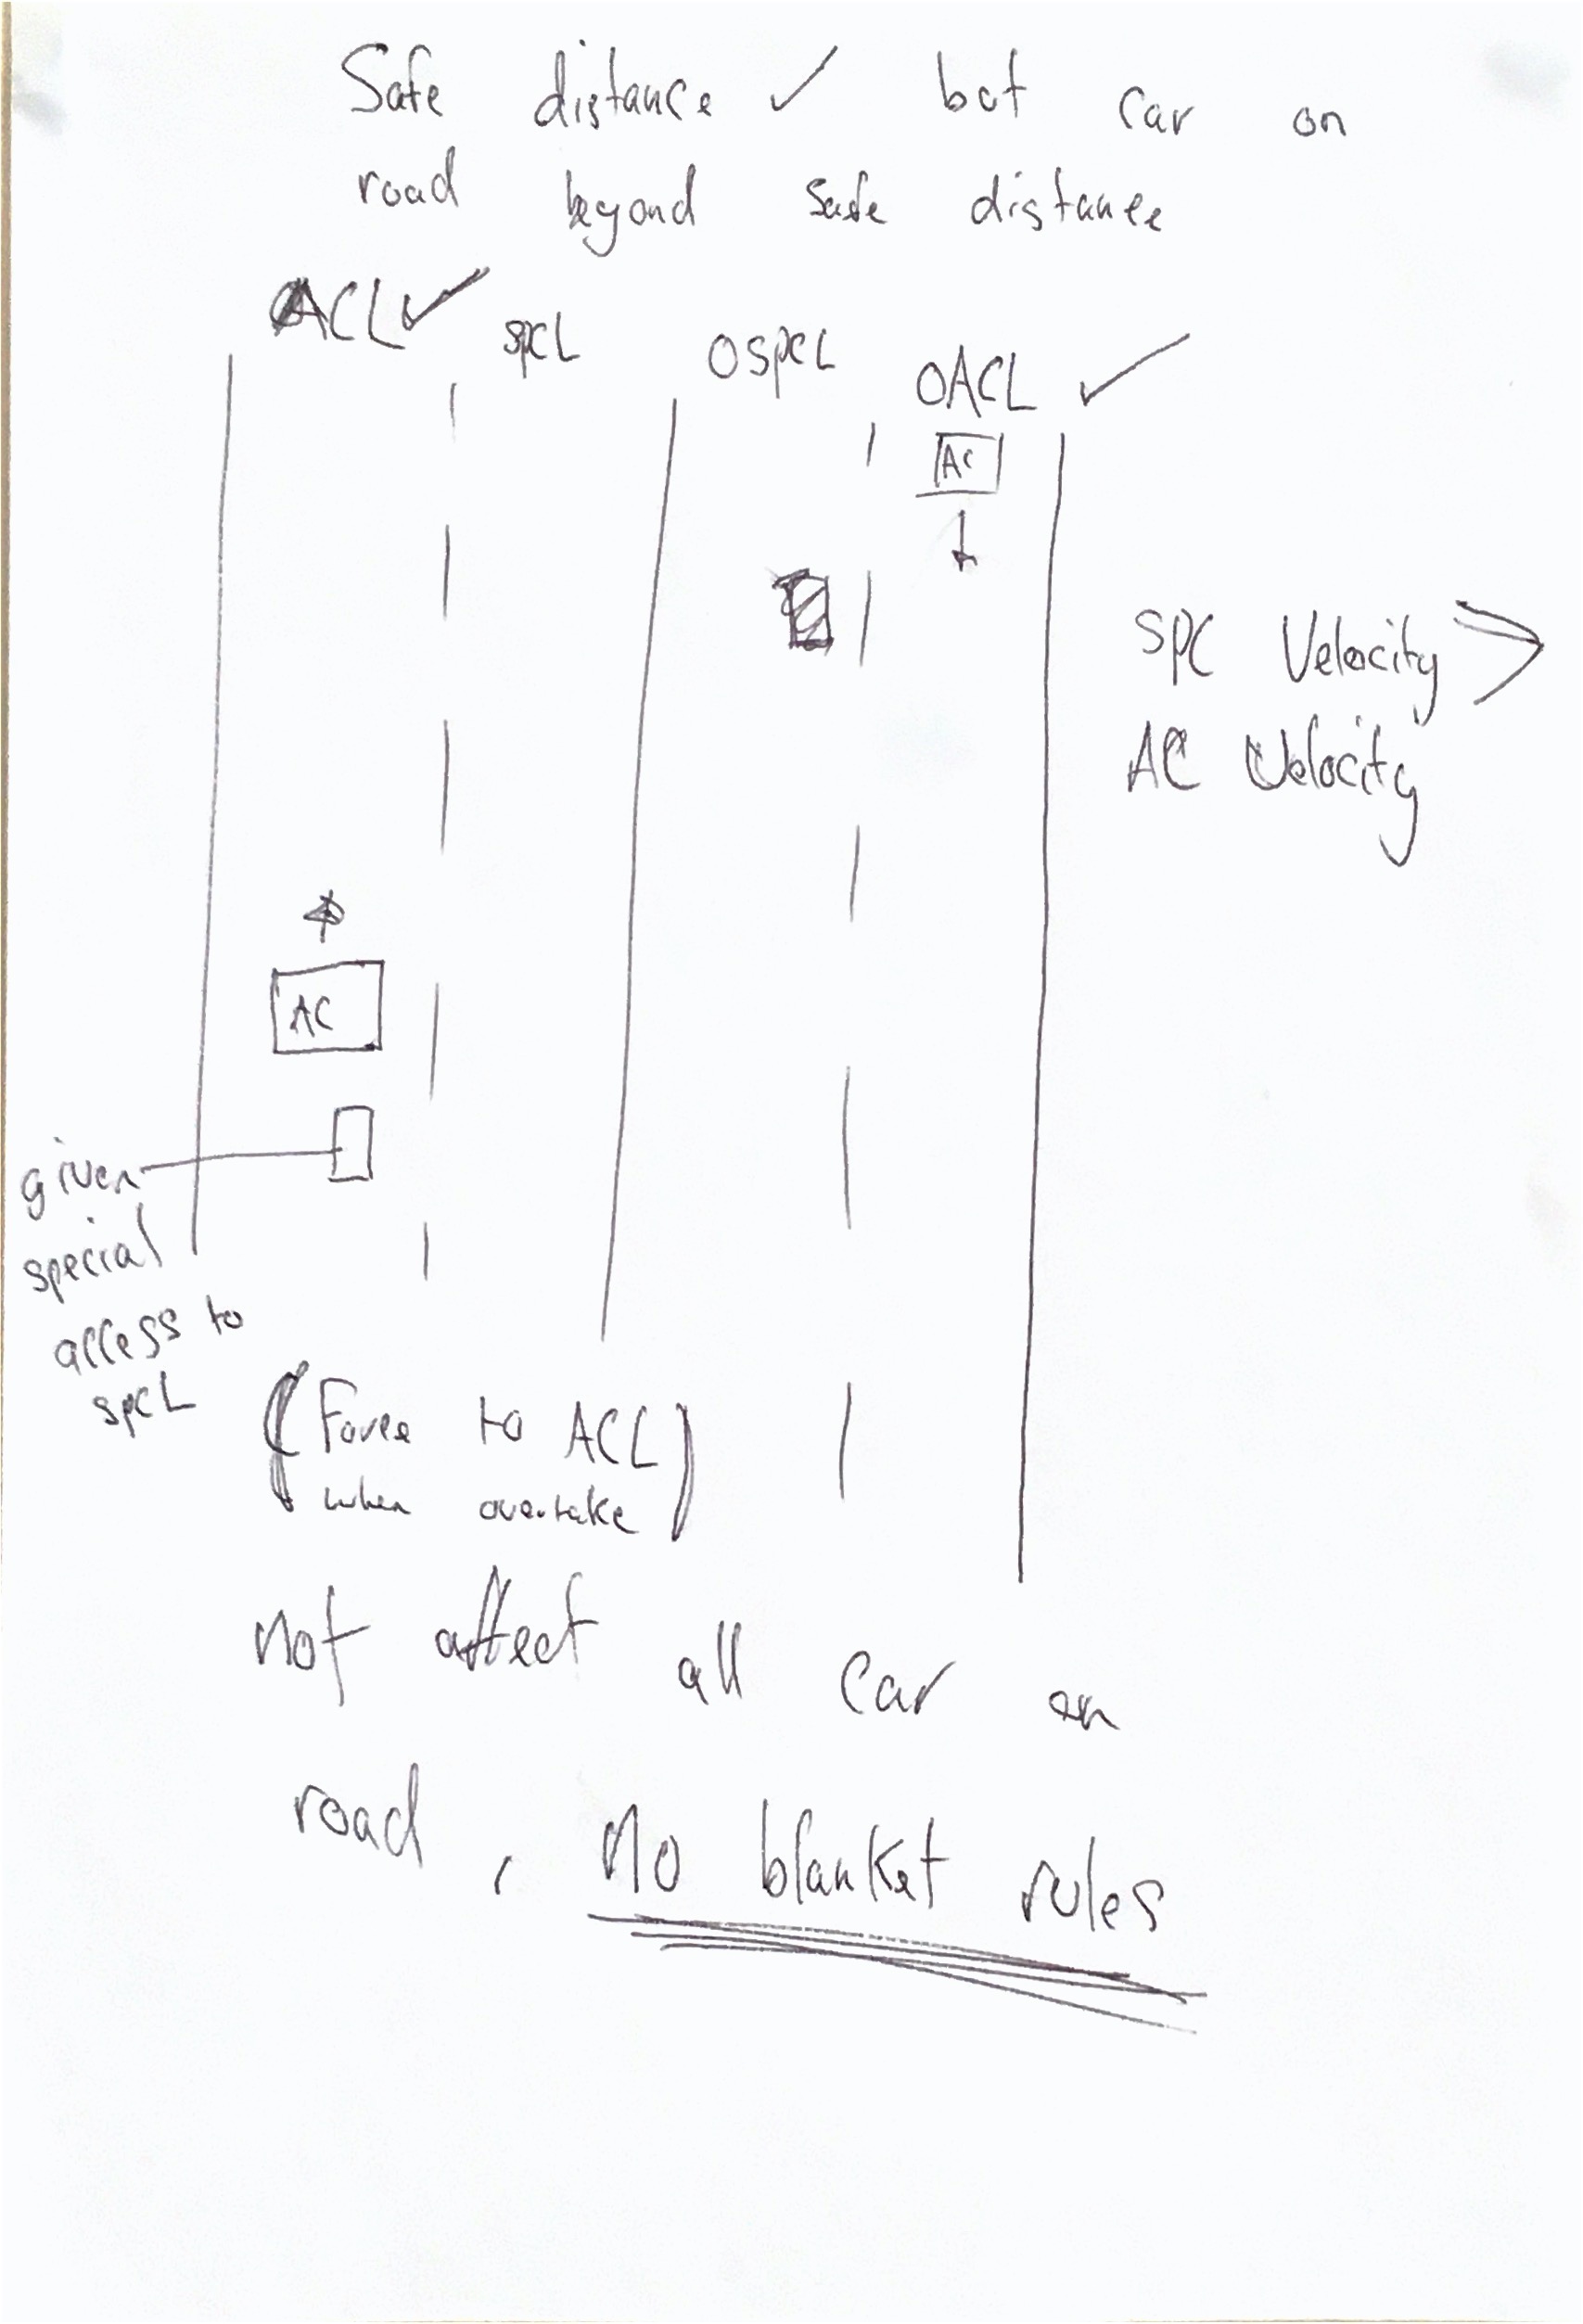 Safe distance ✓ but car on
road beyond safe distance
ACL ✓ SPCL OSPCL OACL ✓
AC
SPC Velocity >
AC Velocity
AC
given
special
access to
SPCL
(Force to ACL)
when overtake
not affect all car on
road, no blanket rules